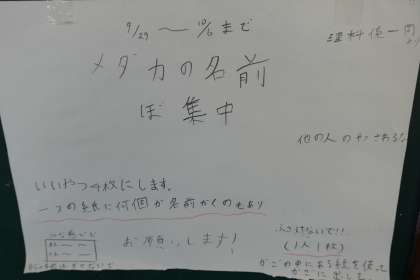 9/29 〜 10/6まで
理科係一同より
メダカの名前
ぼ集中
他の人の
いいやつ4枚にします。
一つの紙に何個か名前かくのもあり
お願いします!
ふざけないで!!
(1人1枚)
かごの中にある紙を使って